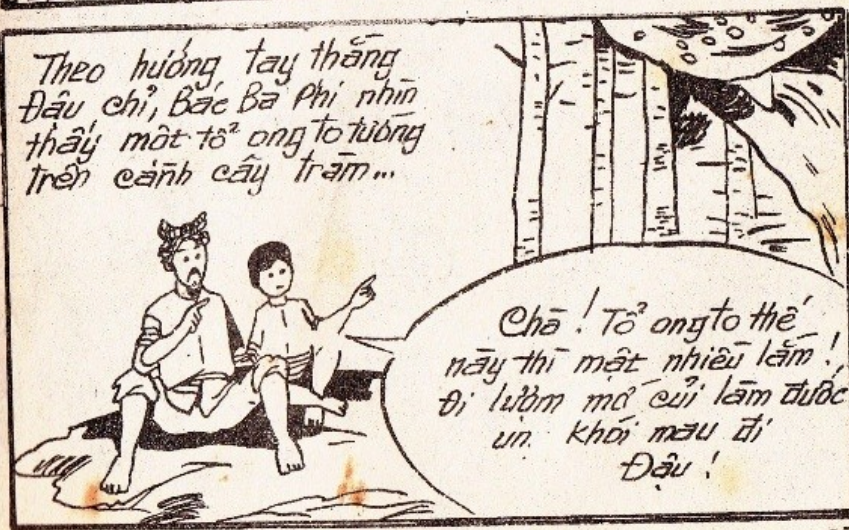 Theo hướng tay thằng
Đậu chỉ, Bác Ba Phi nhìn
thấy một tổ ong to tướng
trên cành cây tràm...
Chà! Tổ ong to thế
này thì mật nhiều lắm!
Đi lượm mớ củi làm đuốc
un khói mau đi
Đậu!